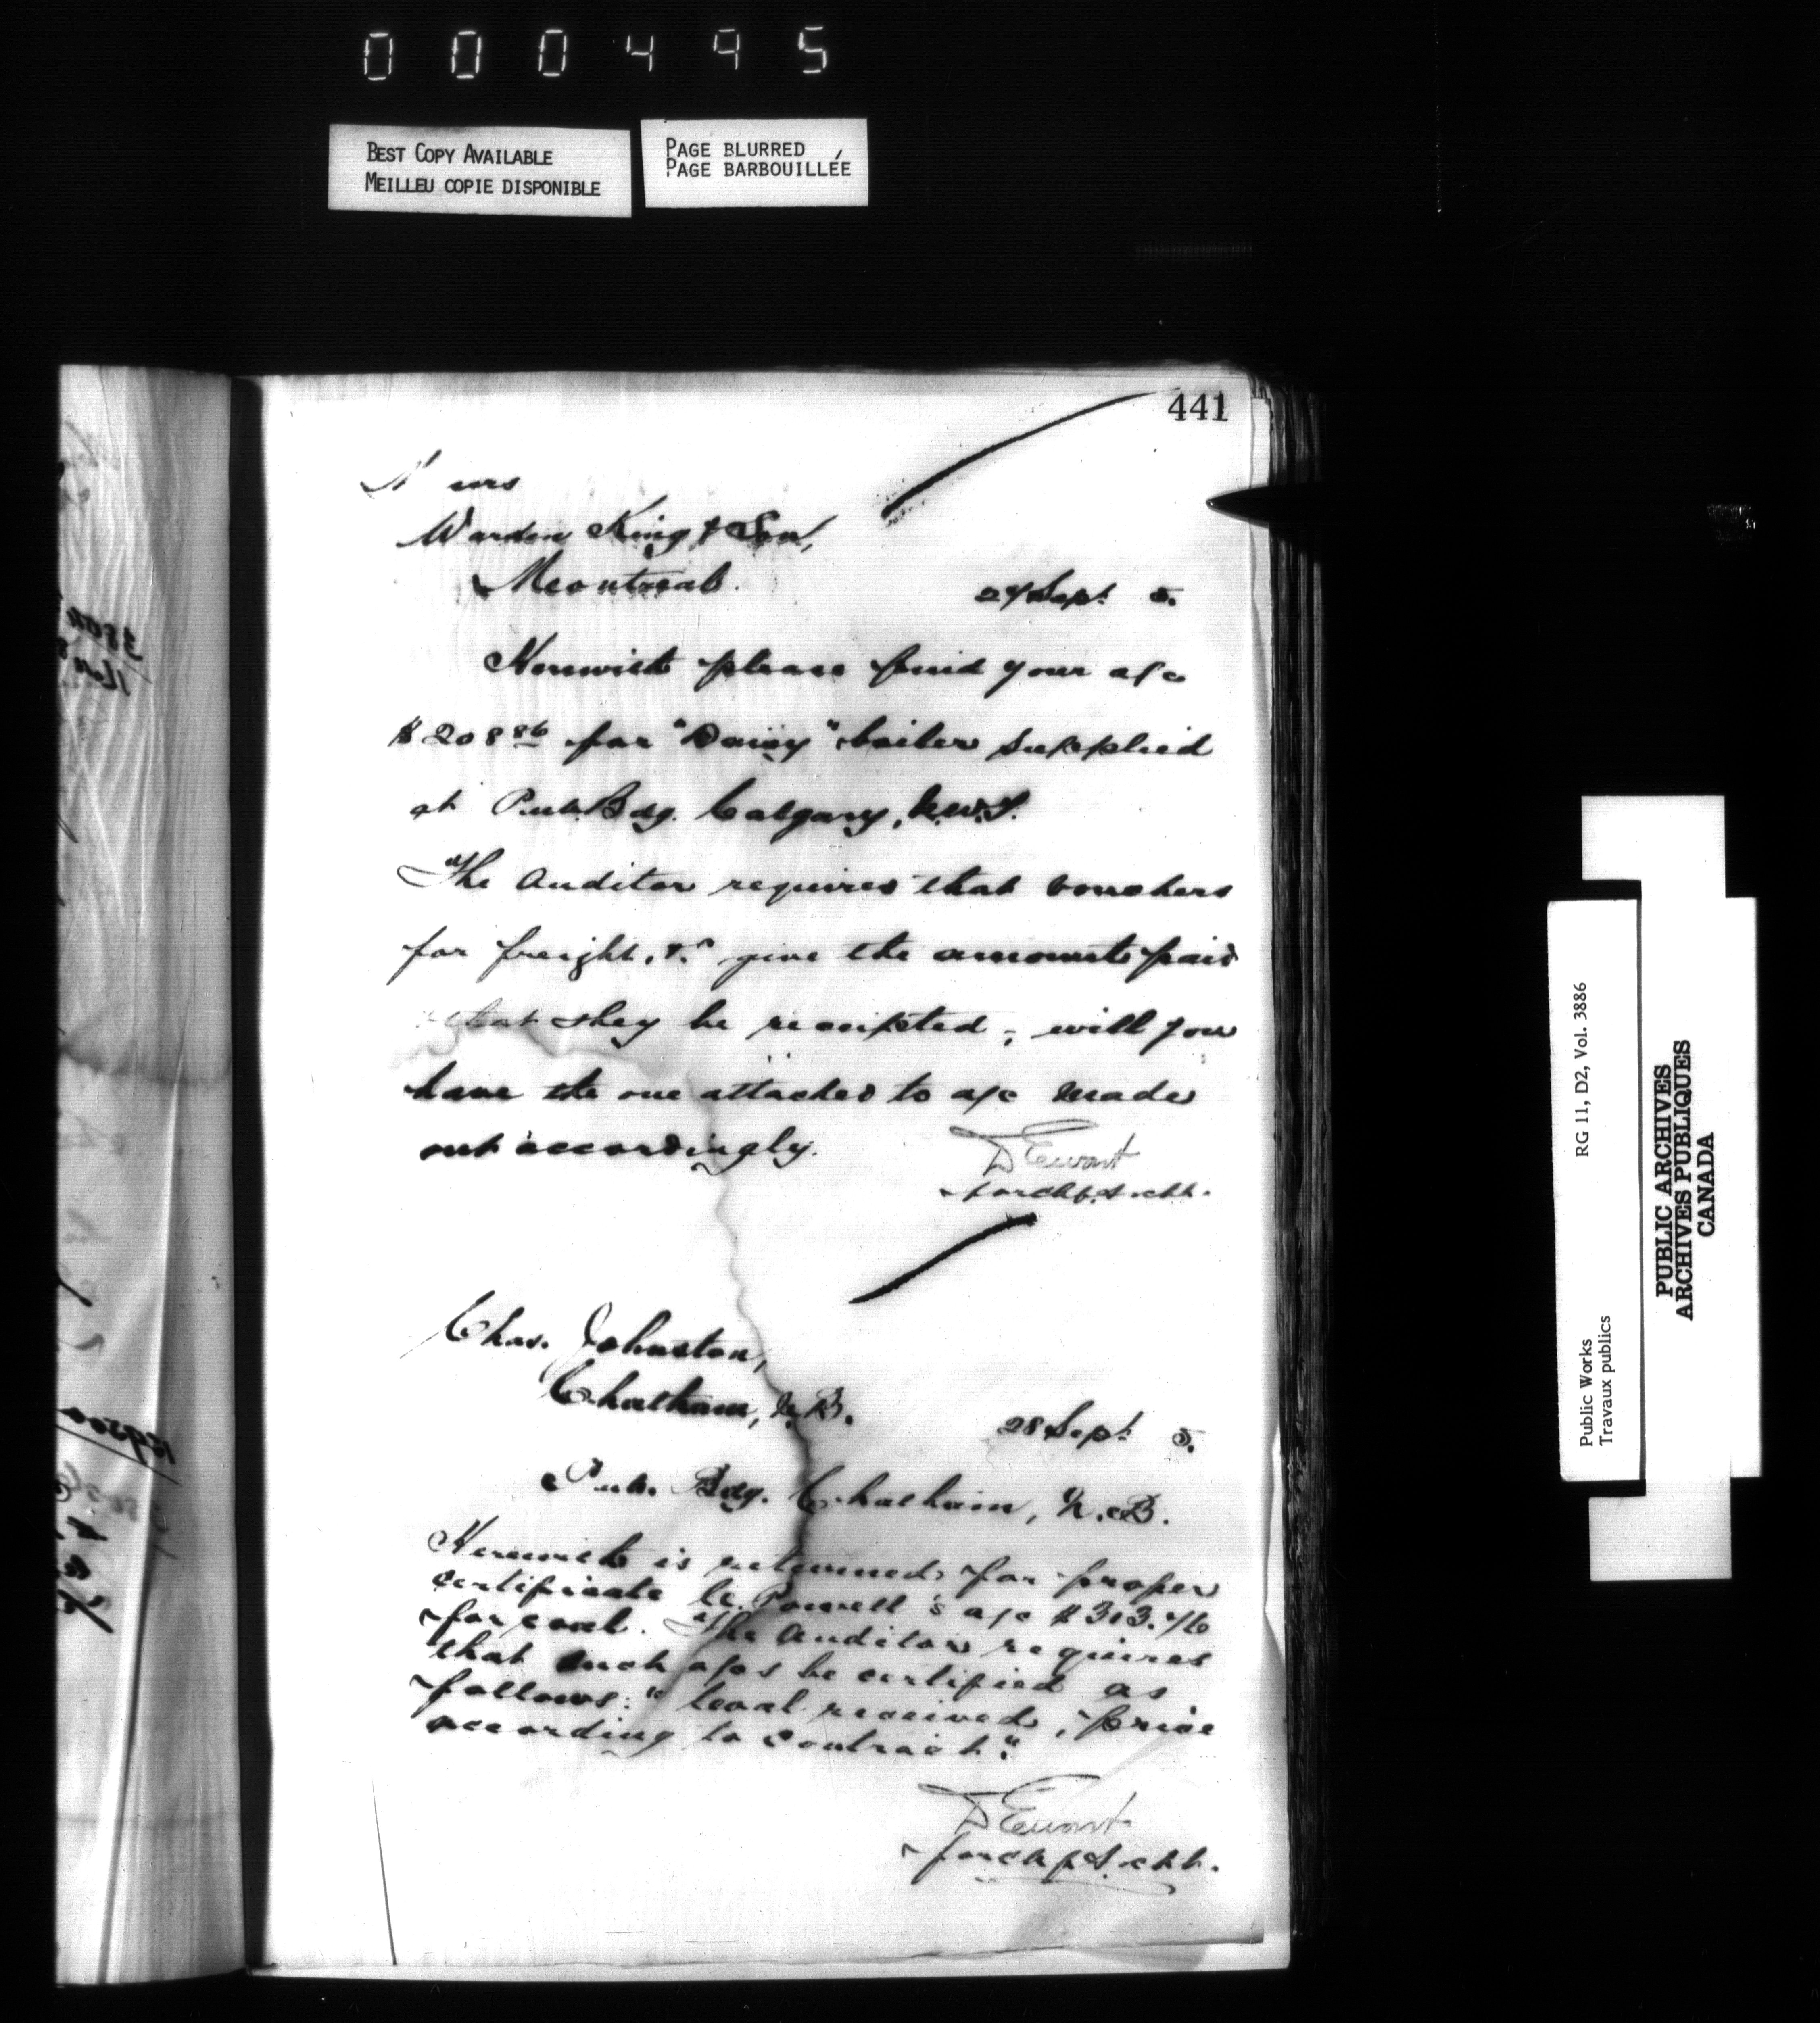 000495
BEST COPY AVAILABLE
MEILLEU COPIE DISPONIBLE
PAGE BLURRED
PAGE BARBOUILLÉE
441
Warden King & Son,
Montreal.
Sept. 5.
Herewith please find your a/c
$208 86 for "Daisy" boiler supplied
at Pub. Bdg. Calgary, N.W.T.
The Auditor requires that vouchers
for freight, &c give the amount paid
that they be receipted; will you
have the one attached to a/c made
out accordingly.
D Ewart
Chas. Johnston,
Chatham, N.B.
28 Sept. 5.
Pub. Bdg. Chatham, N.B.
Herewith is returned, for proper
certificate C. Powell's a/c
for coal. The Auditor requires
that such a/cs be certified as
follows: "Coal received, price
according to contract."
D Ewart
RG 11, D2, Vol. 3886
Public Works
Travaux publics
PUBLIC ARCHIVES
ARCHIVES PUBLIQUES
CANADA